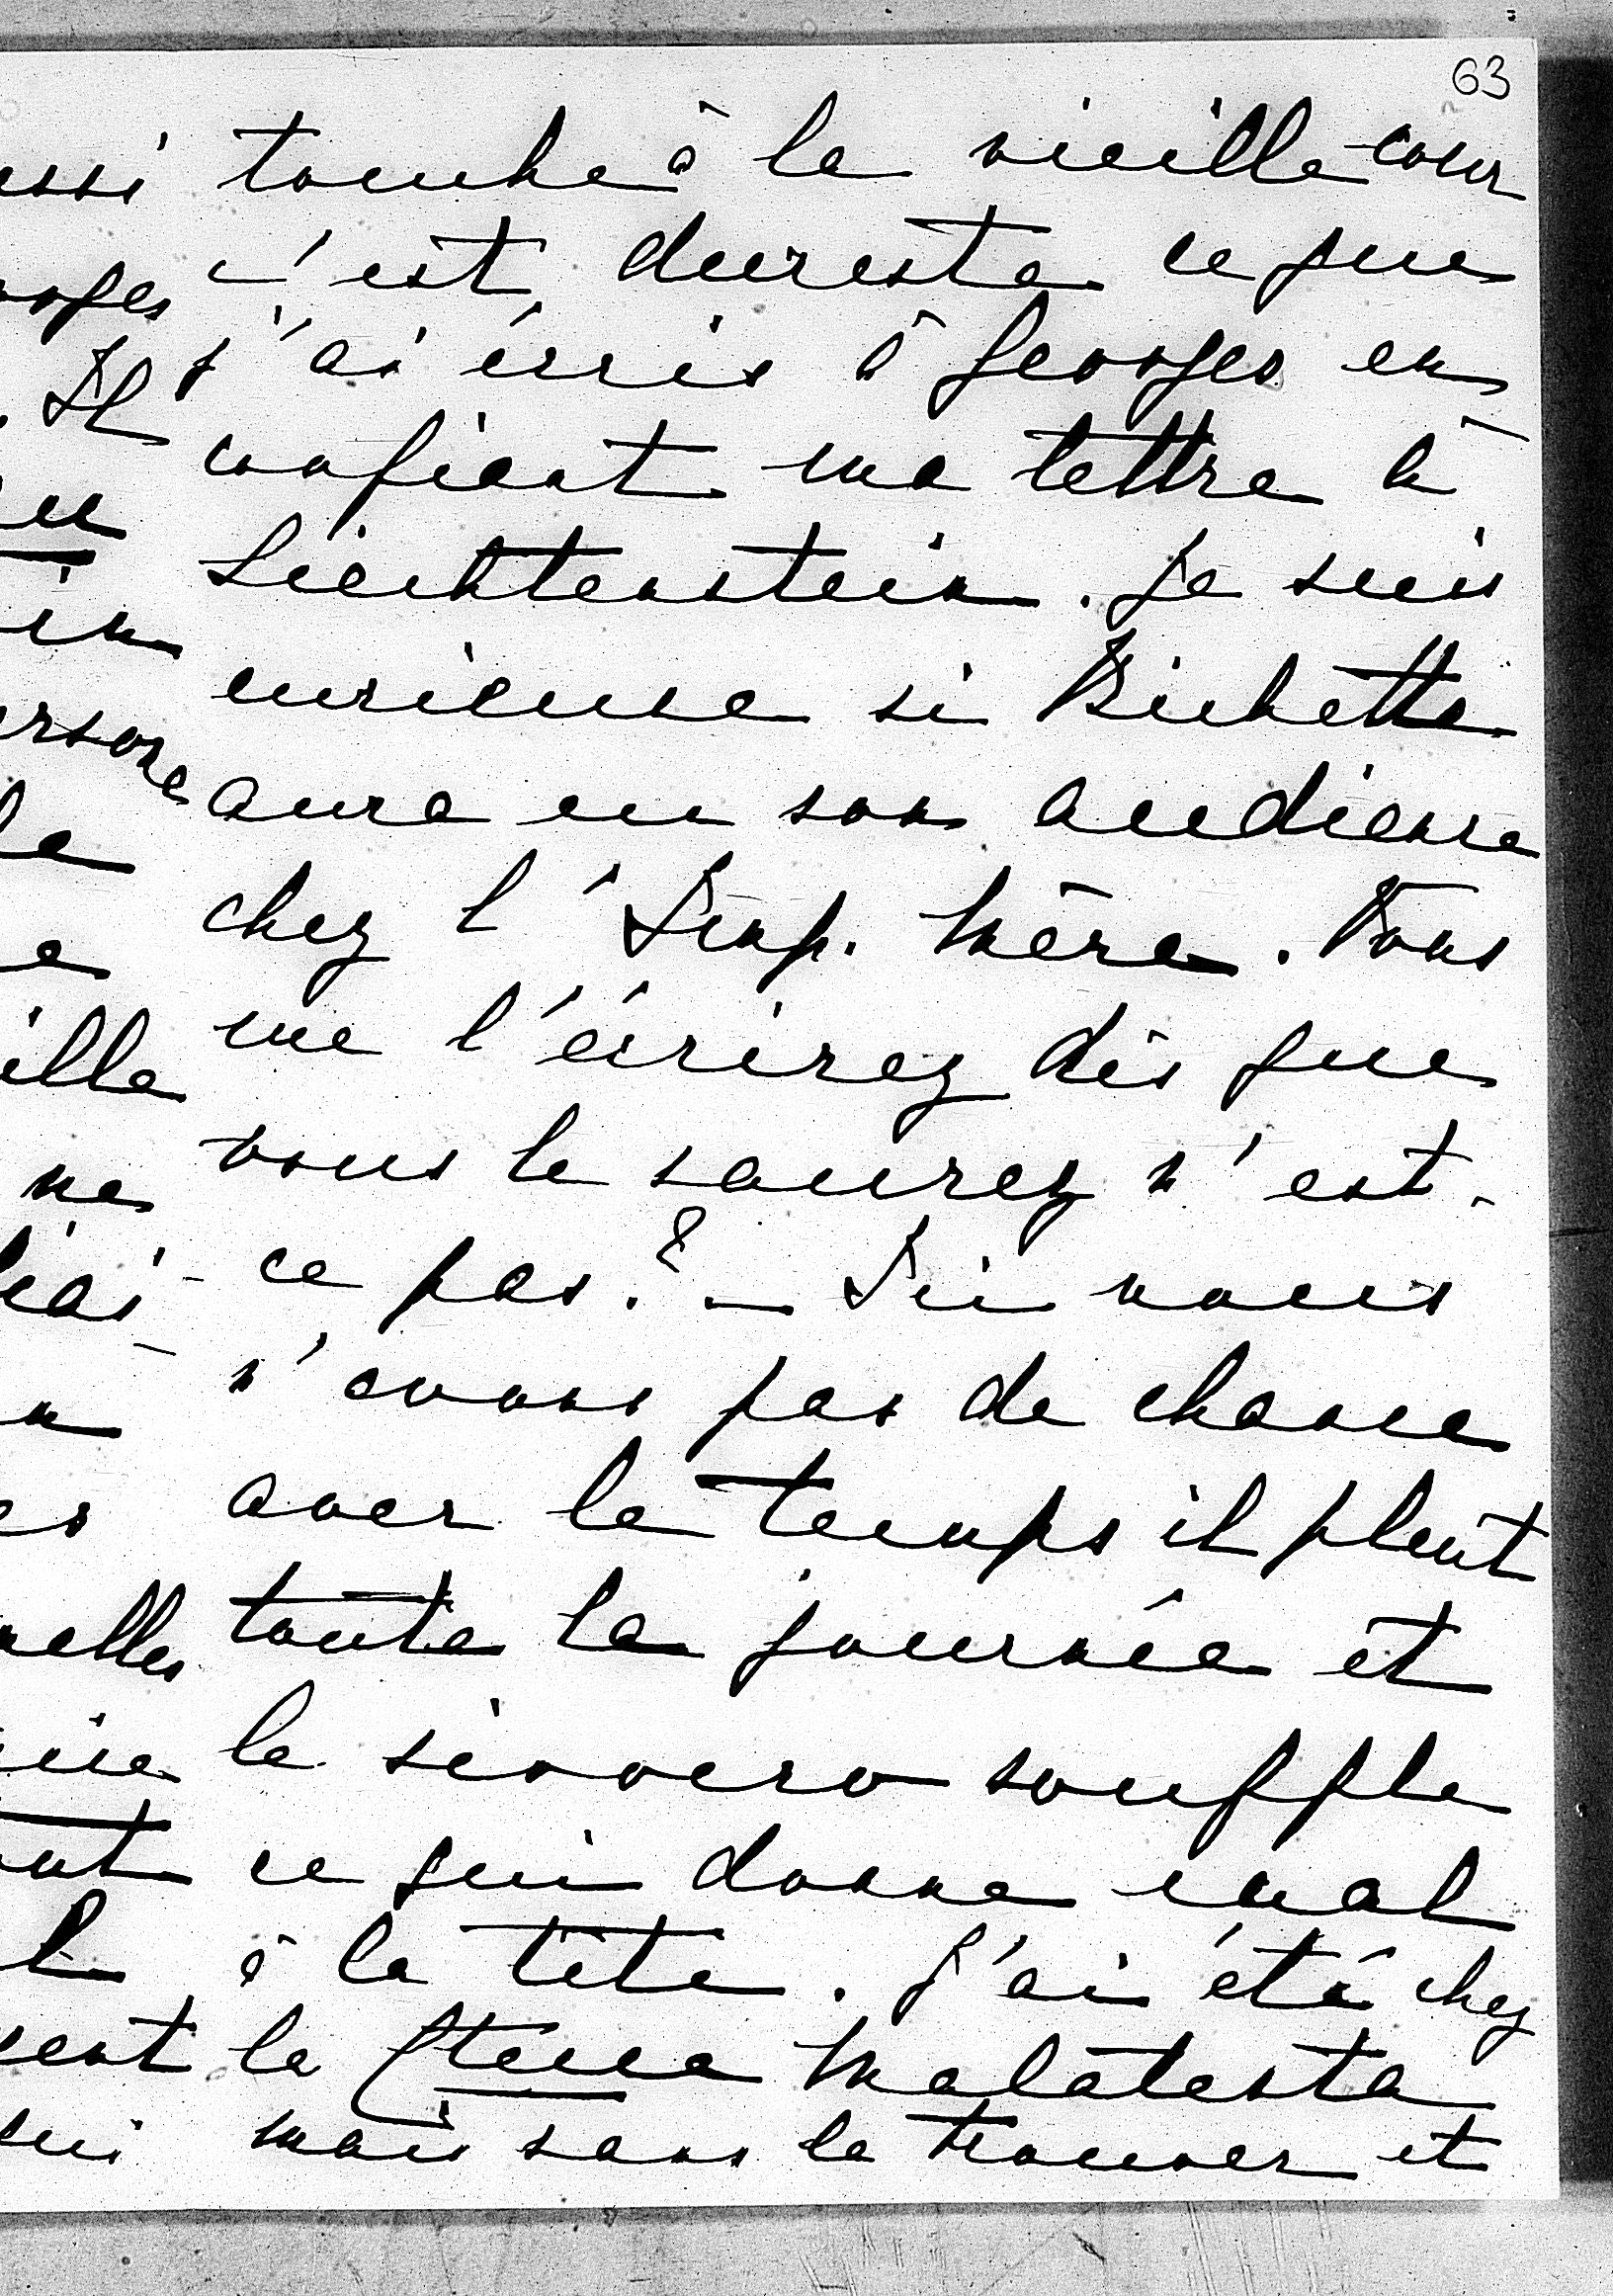 63
touche à la vieille cour
c'est dureste ce que
j'ai écris à Georges en
confiant ma lettre à
Liechtenstein. Je suis
curieuse si Bichette
aura eu son audience
chez l'Imp. Mère. Vous
me l'écrirez dès que
vous le saurez n'est-
ce pas? – Ici nous
n'avons pas de chance
avec le temps il pleut
toute la journée et
le sirocero souffle
ce qui donne mal
à la tête. J'ai été chez
la Ctesse Malatesta
mais sans la trouver et